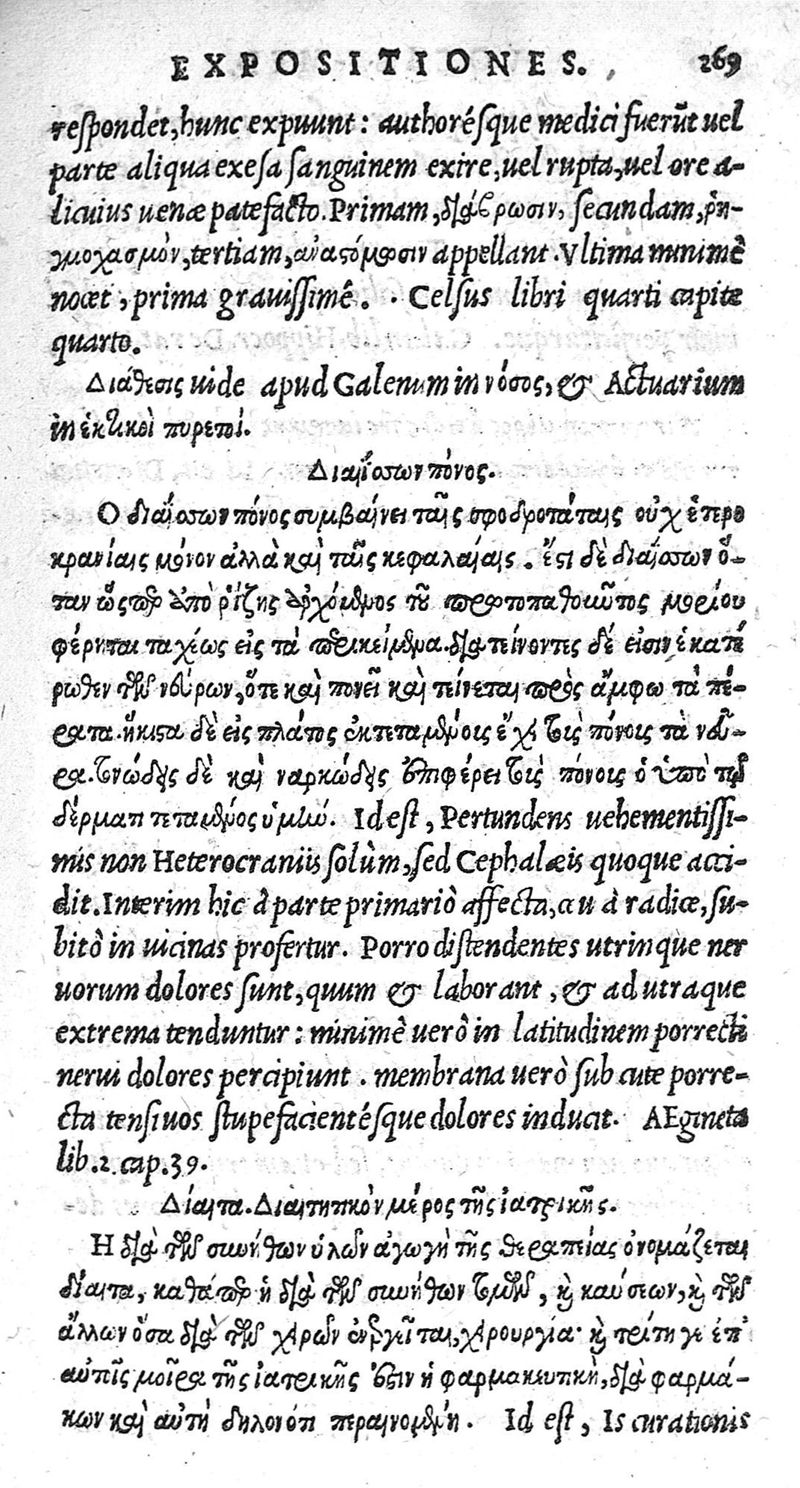 EXPOSITIONES. 269
respondet, hunc expuunt: authorésque medici fuerũt uel
parte aliqua exesa sanguinem exire, uel rupta, uel ore a-
licuius uenæ patefacto. Primam, διάβρωσιν, secundam, ῥη-
γμοχασμὸν, tertiam, ἀναστόμωσιν appellant. Vltima minimè
nocet, prima grauissimè. Celsus libri quarti capite
quarto.
Διάθεσις uide apud Galenum in νόσος, & Actuarium
in ἑκτικοὶ πυρετοί.
Διαΐσσων πόνος.
Ο διαΐσσων πόνος συμβαίνει ταῖς σφοδροτάταις οὐχ ἑτερο
κρανίαις μόνον ἀλλὰ καὶ ταῖς κεφαλαίαις. ἔστι δὲ διαΐσσων ὅ-
ταν ὥσπερ ἀπὸ ῥίζης ἀρχόμενος τοῦ πρωτοπαθοῦντος μορίου
φέρηται ταχέως εἰς τὰ περικείμενα. διατείνοντες δέ εἰσιν ἑκατέ
ρωθεν τῶν νεύρων, ὅτε καὶ πονεῖ καὶ τείνεται πρὸς ἄμφω τὰ πέ-
ρατα. ἥκιστα δὲ εἰς πλάτος ἐκτεταμένοις ἔχει τοῖς πόνοις τὰ νεῦ-
ρα. τονώδεις δὲ καὶ ναρκώδεις ἐπιφέρει τοὺς πόνοις ὁ ὑπὸ τῷ
δέρματι τεταμένος ὑμὴν. Id est, Pertundens uehementissi-
mis non Heterocraniis solùm, sed Cephalæis quoque acci-
dit. Interim hic à parte primariò affecta, ceu à radice, su-
bitò in uicinas profertur. Porro distendentes utrinque ner
uorum dolores sunt, quum & laborant, & ad utraque
extrema tenduntur: minimè uerò in latitudinem porrecti
nerui dolores percipiunt. membrana uerò sub cute porre-
cta tensiuos stupefacientésque dolores inducit. AEgineta
lib. 2. cap. 39.
Δίαιτα. Διαιτητικὸν μέρος τῆς ἰατρικῆς.
Η διὰ τῶν συνήθων ὑλῶν ἀγωγὴ τῆς θεραπείας ὀνομάζεται
δίαιτα, καθάπερ ἡ διὰ τῶν συνήθων τομῶν, καὶ καύσεων, καὶ τῶν
ἄλλων ὅσα διὰ τῶν χειρῶν ἐνεργεῖται, χειρουργία· καὶ τρίτη γε ἐπ'
αὐταῖς μοῖρα τῆς ἰατρικῆς ἐστιν ἡ φαρμακευτικὴ, διὰ φαρμά-
κων καὶ αὐτὴ δηλονότι περαινομένη. Id est, Is curationis